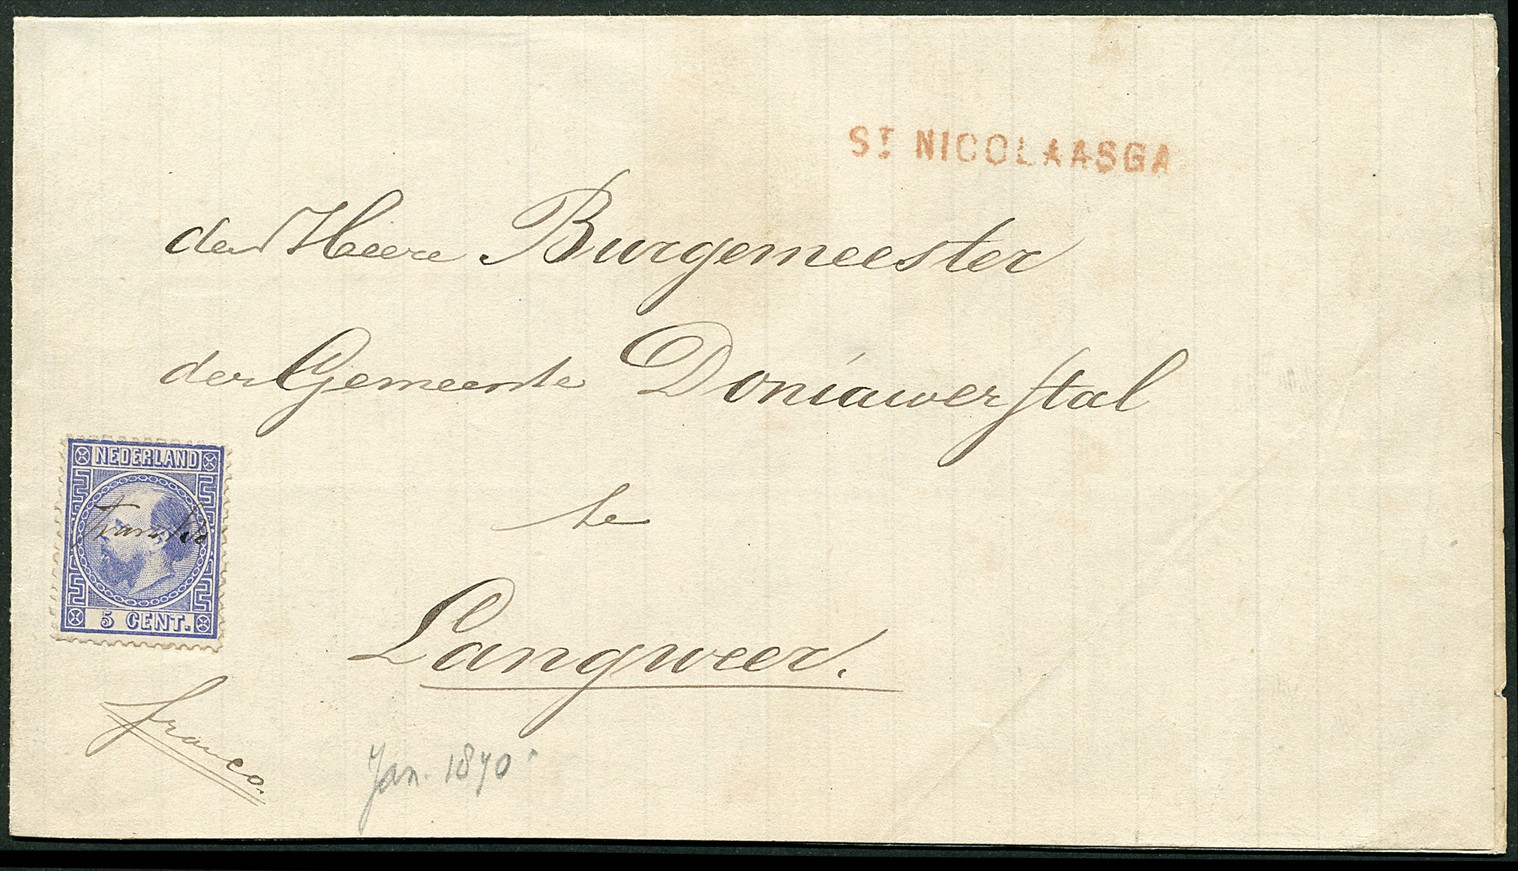 ST NICOLAASGA
den Heere Burgemeester
der Gemeente Doniawerstal
te
Langweer.
NEDERLAND
5 CENT.
franco.
Jan. 1870